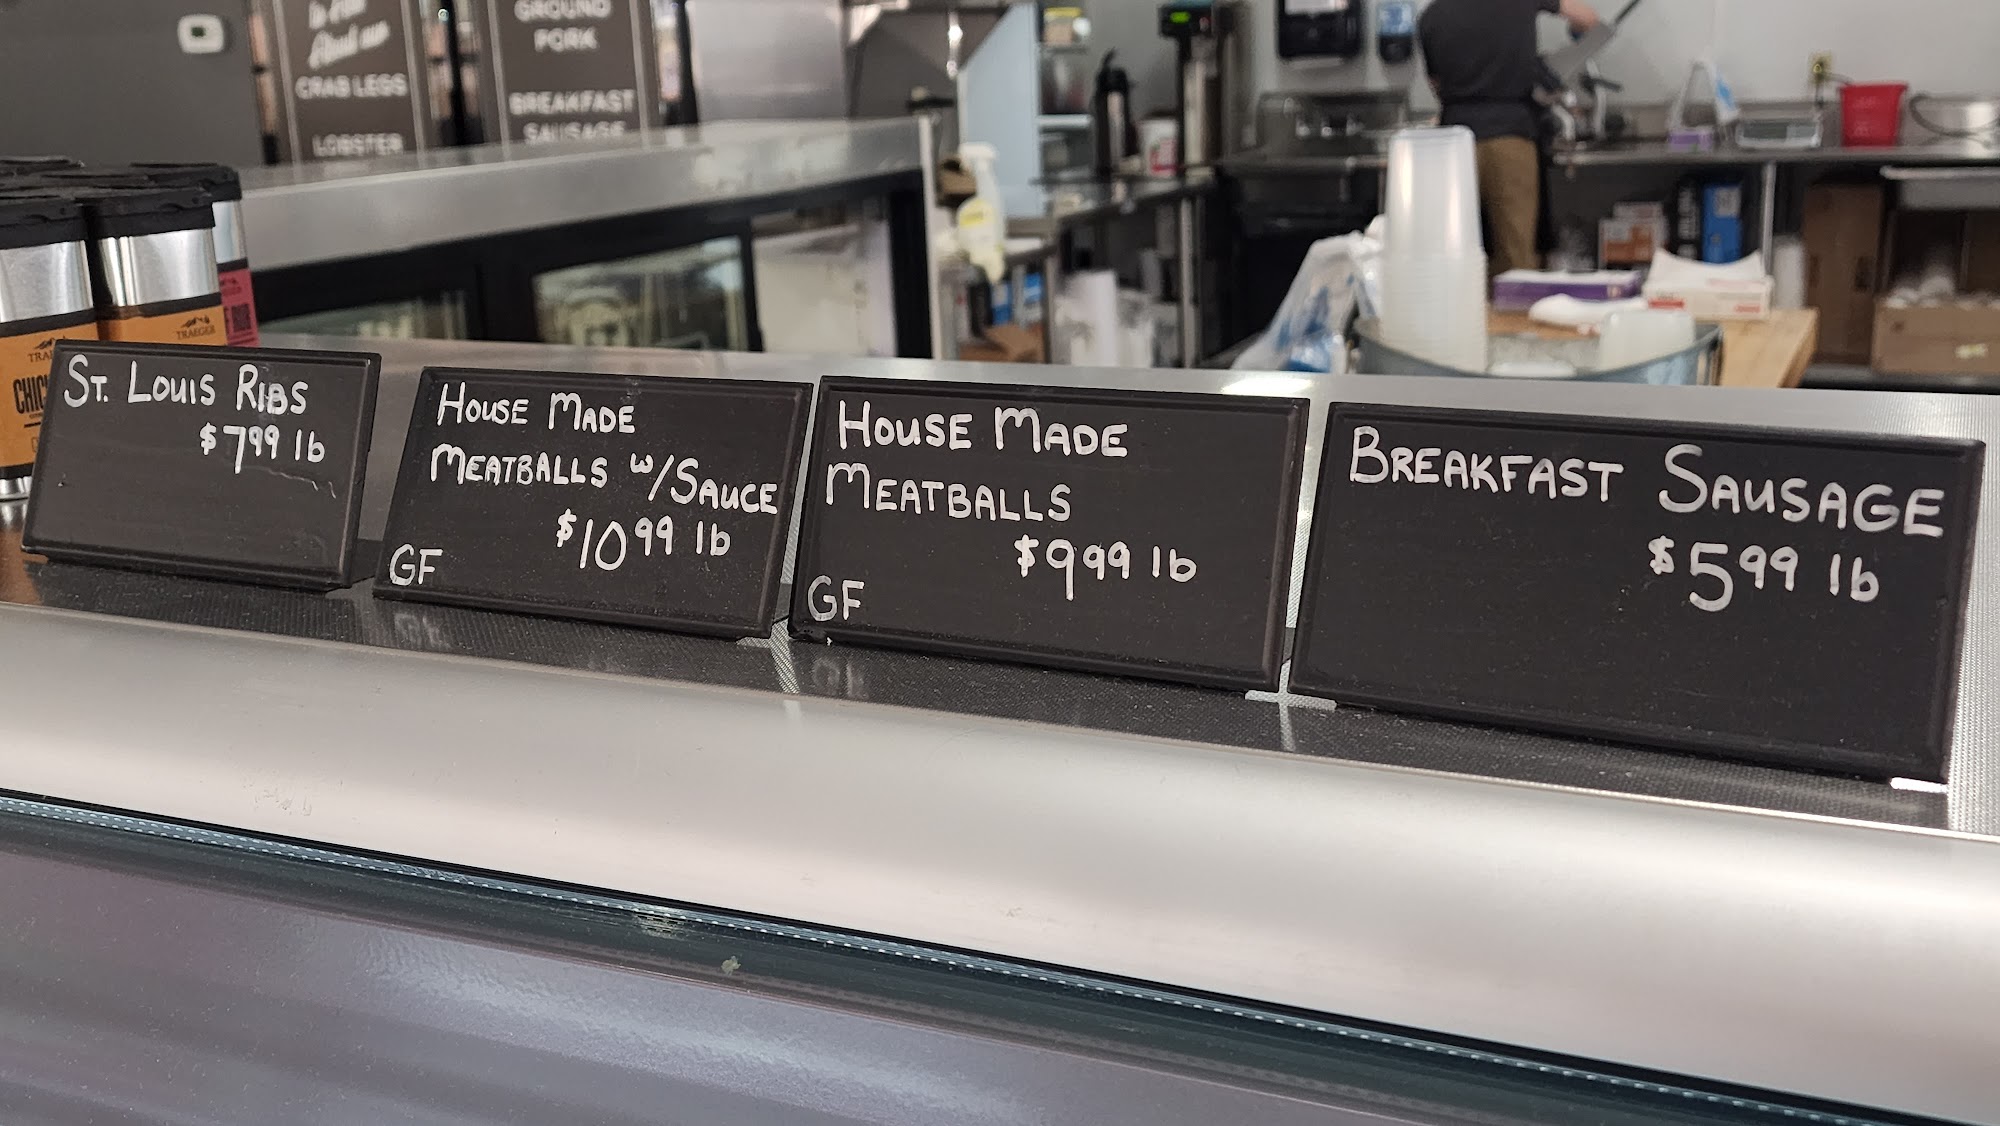 CRAB LEGS
LOBSTER
GROUND
PORK
BREAKFAST
SAUSAGE
TRAEGER
ST. LOUIS RIBS
$7.99 lb
HOUSE MADE
MEATBALLS w/SAUCE
$10.99 lb
GF
HOUSE MADE
MEATBALLS
$9.99 lb
GF
BREAKFAST SAUSAGE
$5.99 lb